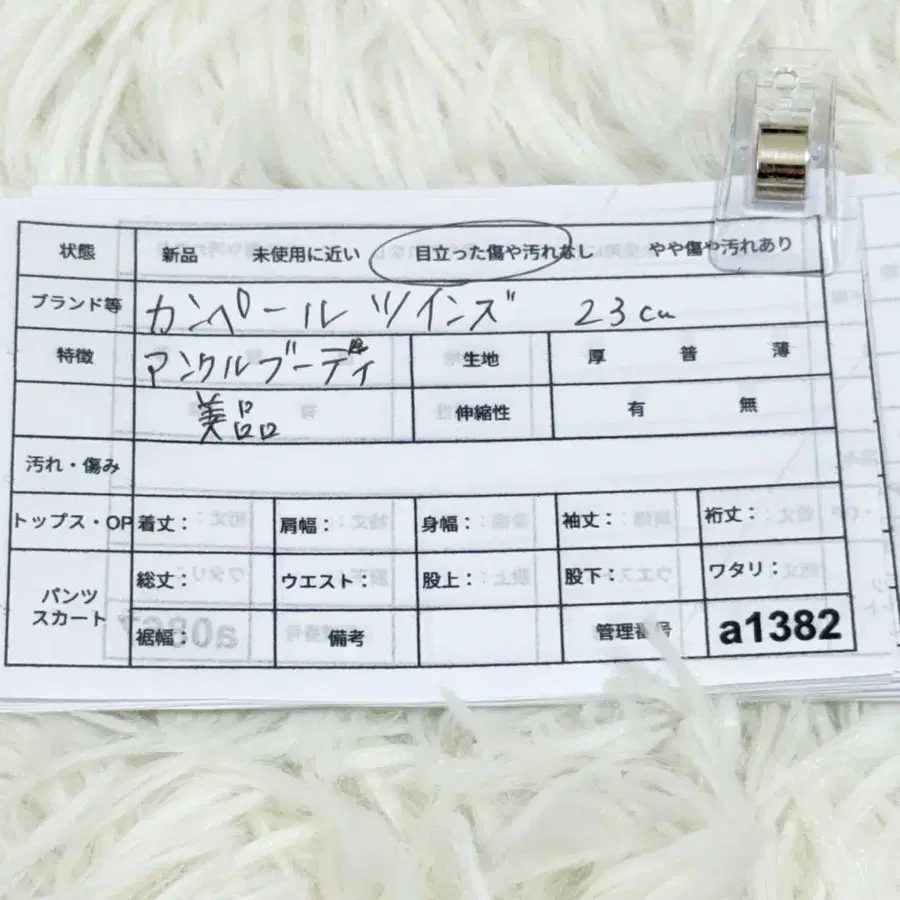 状態 新品 未使用に近い 目立った傷や汚れなし やや傷や汚れあり
ブランド等 カンペール ツインズ 23cm
特徴 アンクルブーティ 生地 厚 普 薄
美品 伸縮性 有 無
汚れ・傷み
トップス・OP 着丈： 肩幅： 身幅： 袖丈： 裄丈：
パンツ スカート 総丈： ウエスト： 股上： 股下： ワタリ：
裾幅： 備考 管理番号 a1382